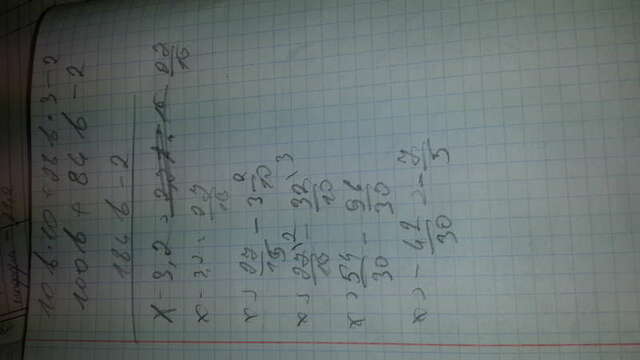 10b·10+28b·3-2
100b+84b-2
184b-2
x-3,2= 27/15
x-3,2= 27/15
x= 27/15 - 3 2/10
x= 27\2/15 - 32\3/10
x= 54/30 - 96/30
x= -42/30 = -7/5